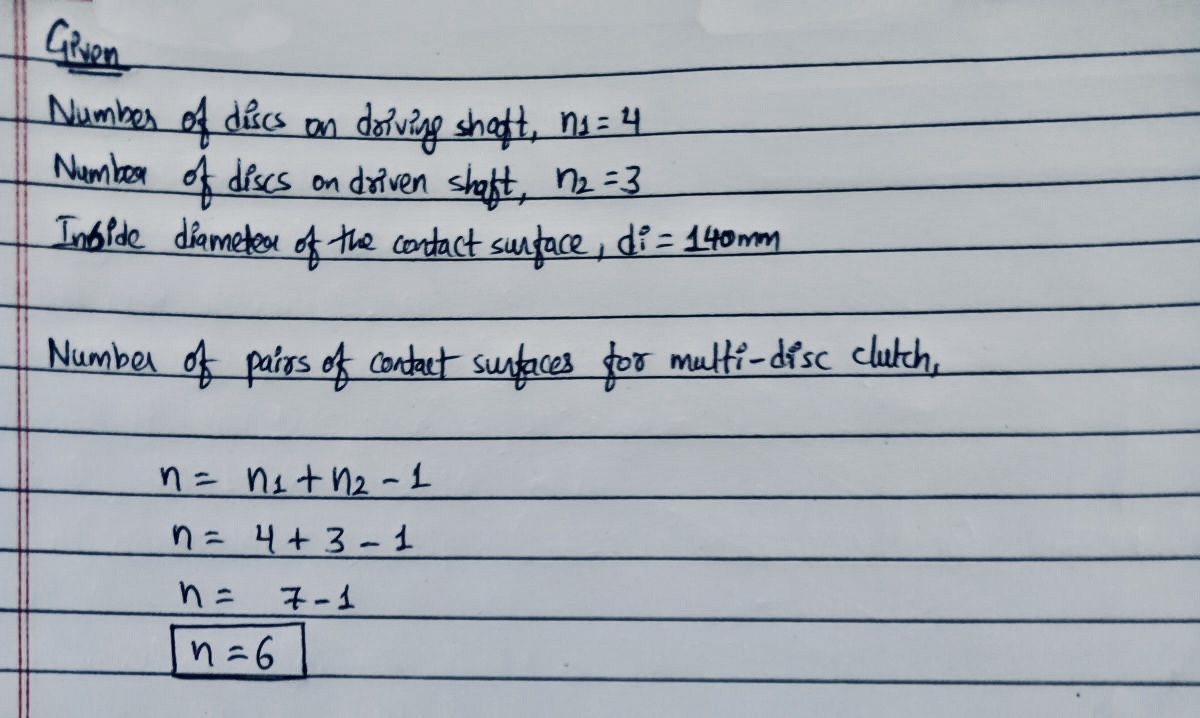 Given
Number of discs on driving shaft, n1 = 4
Number of discs on driven shaft, n2 = 3
Inside diameter of the contact surface, di = 140mm
Number of pairs of contact surfaces for multi-disc clutch,
n = n1 + n2 - 1
n = 4 + 3 - 1
n = 7 - 1
n = 6